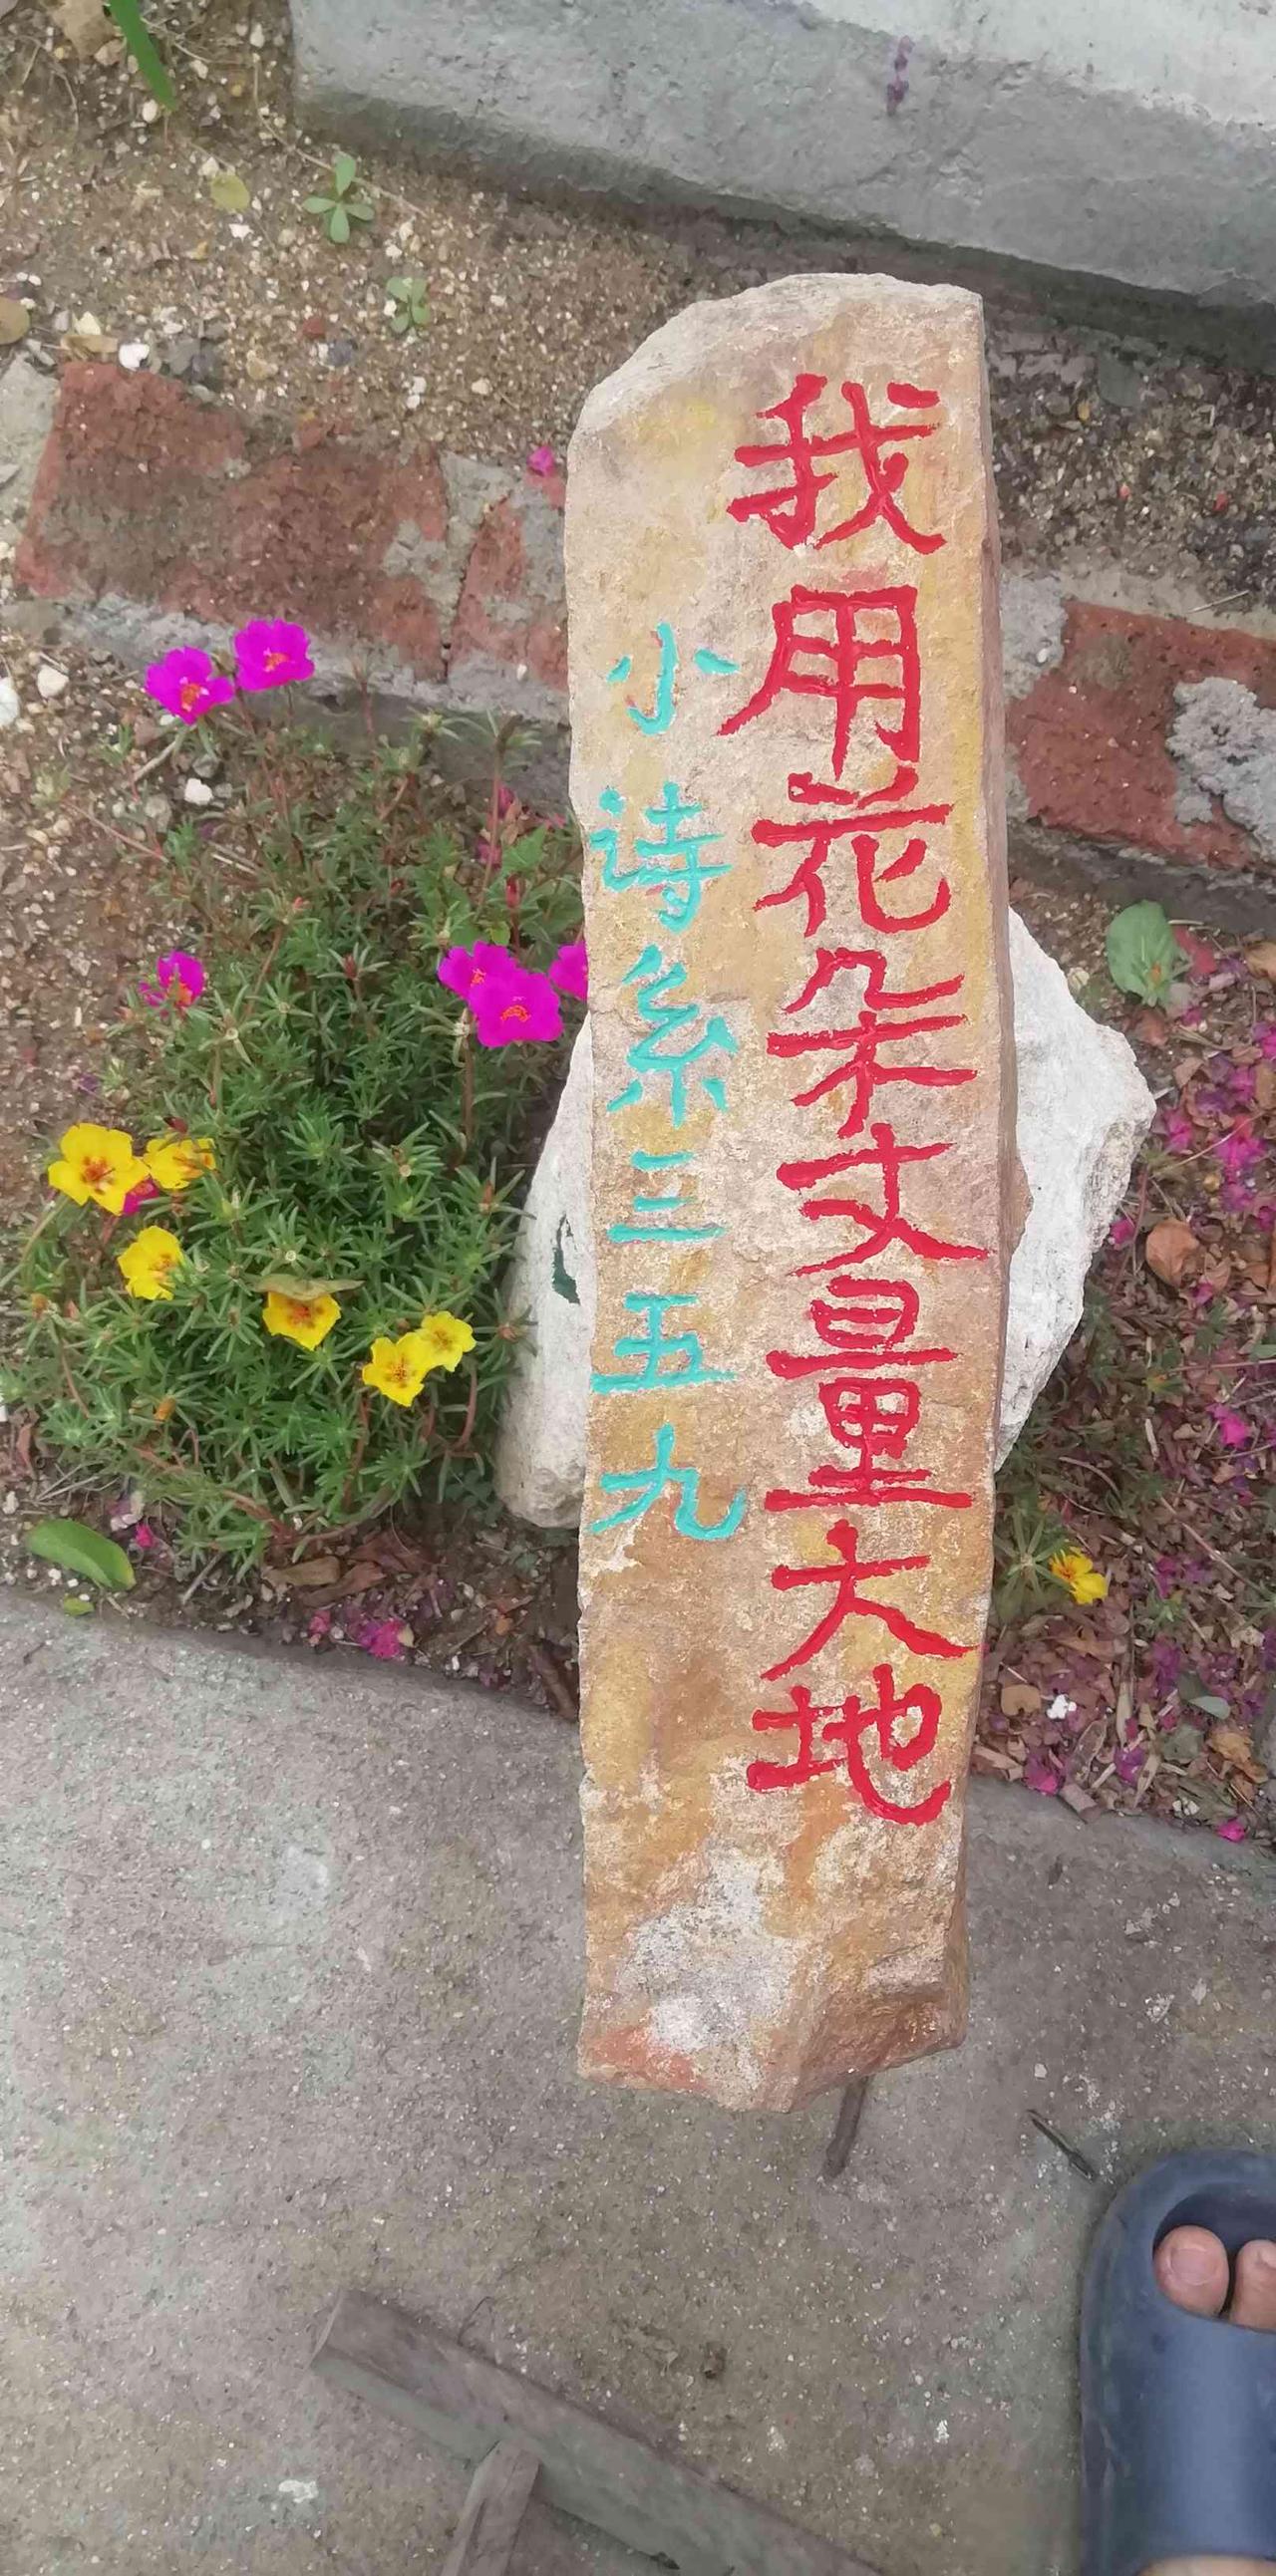 我用花朵丈量大地
小诗系三五九